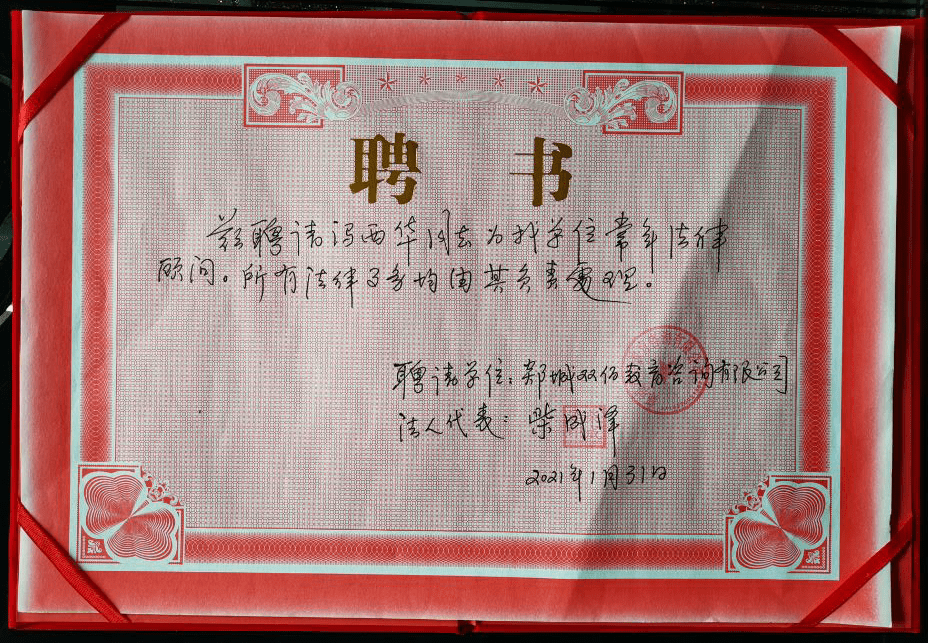 聘书
兹聘请冯西华同志为我单位常年法律
顾问。所有法律事务均由其负责处理。
聘请单位：郯城双佰教育咨询有限公司
法人代表：柴成泽
2021年1月31日